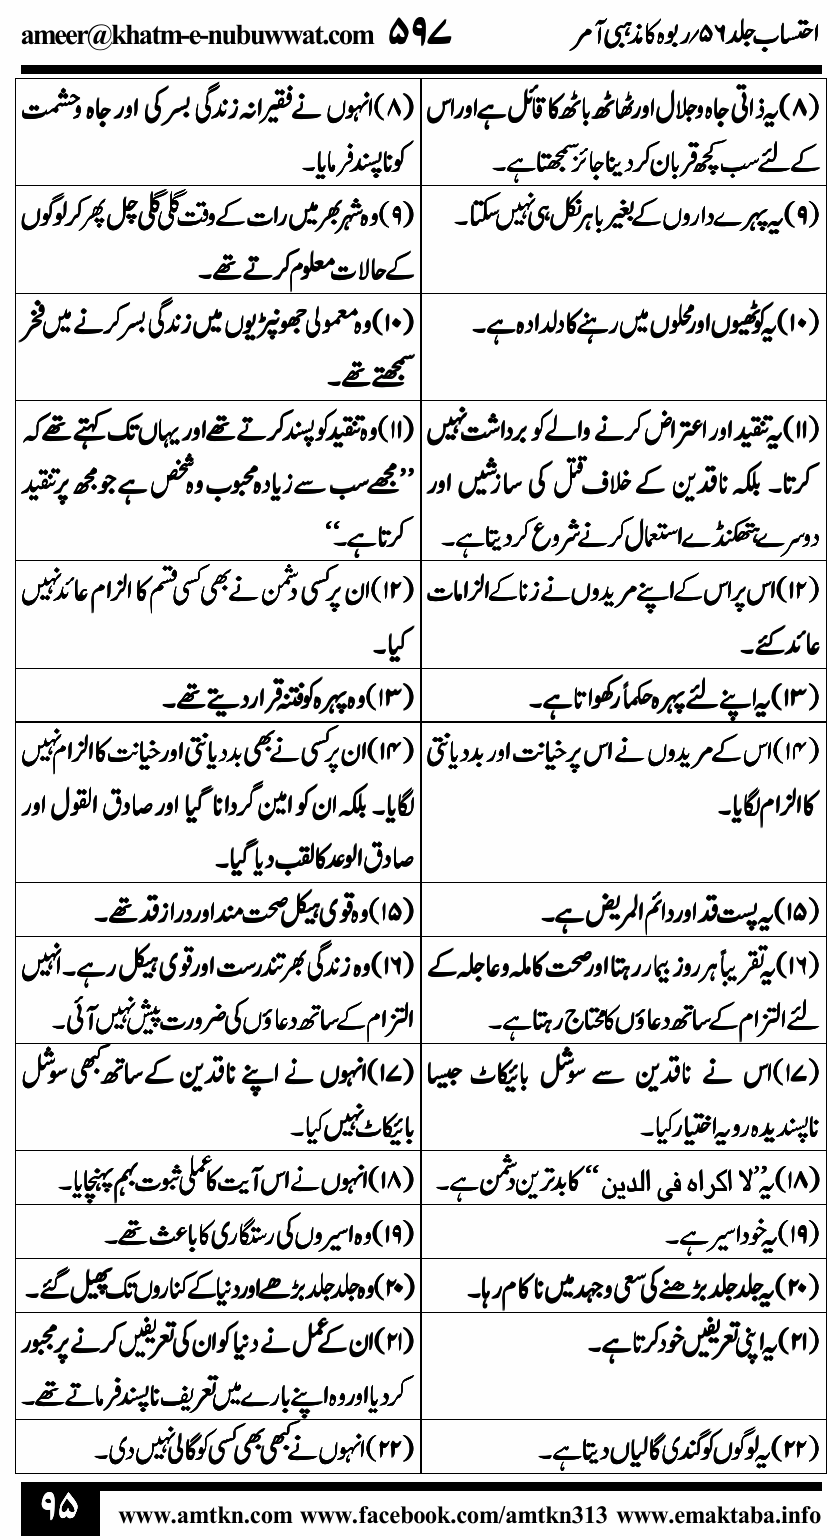 احتساب جلد ۵۶؍ ربوہ کا مذہبی آمر ۵۹۷ ameer@khatm-e-nubuwwat.com
(۸) یہ ذاتی جاہ و جلال اور ٹھاٹھ باٹھ کا قائل ہے اور اس
کے لئے سب کچھ قربان کر دینا جائز سمجھتا ہے۔
(۸) انہوں نے فقیرانہ زندگی بسر کی اور جاہ وحشمت
کو ناپسند فرمایا۔
(۹) یہ پہرے داروں کے بغیر باہر نکل ہی نہیں سکتا۔
(۹) وہ شہر بھر میں رات کے وقت گلی گلی چل پھر کر لوگوں
کے حالات معلوم کرتے تھے۔
(۱۰) یہ کوٹھیوں اور محلوں میں رہنے کا دلدادہ ہے۔
(۱۰) وہ معمولی جھونپڑیوں میں زندگی بسر کرنے میں فخر
سمجھتے تھے۔
(۱۱) یہ تنقید اور اعتراض کرنے والے کو برداشت نہیں
کرتا۔ بلکہ ناقدین کے خلاف قتل کی سازشیں اور
دوسرے ہتھکنڈے استعمال کرنے شروع کر دیتا ہے۔
(۱۱) وہ تنقید کو پسند کرتے تھے اور یہاں تک کہتے تھے کہ
’’مجھے سب سے زیادہ محبوب وہ شخص ہے جو مجھ پر تنقید
کرتا ہے۔‘‘
(۱۲) اس پر اس کے اپنے مریدوں نے زنا کے الزامات
عائد کئے۔
(۱۲) ان پر کسی دشمن نے بھی کسی قسم کا الزام عائد نہیں
کیا۔
(۱۳) یہ اپنے لئے پہرہ حکماً رکھواتا ہے۔
(۱۳) وہ پہرہ کو فتنہ قرار دیتے تھے۔
(۱۴) اس کے مریدوں نے اس پر خیانت اور بددیانتی
کا الزام لگایا۔
(۱۴) ان پر کسی نے بھی بددیانتی اور خیانت کا الزام نہیں
لگایا۔ بلکہ ان کو امین گردانا گیا اور صادق القول اور
صادق الوعد کا لقب دیا گیا۔
(۱۵) یہ پست قد اور دائم المریض ہے۔
(۱۵) وہ قوی ہیکل صحت مند اور دراز قد تھے۔
(۱۶) یہ تقریباً ہر روز بیمار رہتا اور صحت کاملہ وعاجلہ کے
لئے التزام کے ساتھ دعاؤں کا محتاج رہتا ہے۔
(۱۶) وہ زندگی بھر تندرست اور قوی ہیکل رہے۔ انہیں
التزام کے ساتھ دعاؤں کی ضرورت پیش نہیں آئی۔
(۱۷) اس نے ناقدین سے سوشل بائیکاٹ جیسا
ناپسندیدہ رویہ اختیار کیا۔
(۱۷) انہوں نے اپنے ناقدین کے ساتھ کبھی سوشل
بائیکاٹ نہیں کیا۔
(۱۸) یہ ’’لا اکراہ فی الدین‘‘ کا بدترین دشمن ہے۔
(۱۸) انہوں نے اس آیت کا عملی ثبوت بہم پہنچایا۔
(۱۹) یہ خود اسیر ہے۔
(۱۹) وہ اسیروں کی رستگاری کا باعث تھے۔
(۲۰) یہ جلد جلد بڑھنے کی سعی وجہد میں ناکام رہا۔
(۲۰) وہ جلد جلد بڑھے اور دنیا کے کناروں تک پھیل گئے۔
(۲۱) یہ اپنی تعریفیں خود کرتا ہے۔
(۲۱) ان کے عمل نے دنیا کو ان کی تعریفیں کرنے پر مجبور
کر دیا اور وہ اپنے بارے میں تعریف ناپسند فرماتے تھے۔
(۲۲) یہ لوگوں کو گندی گالیاں دیتا ہے۔
(۲۲) انہوں نے کبھی بھی کسی کو گالی نہیں دی۔
۹۵ www.amtkn.com www.facebook.com/amtkn313 www.emaktaba.info